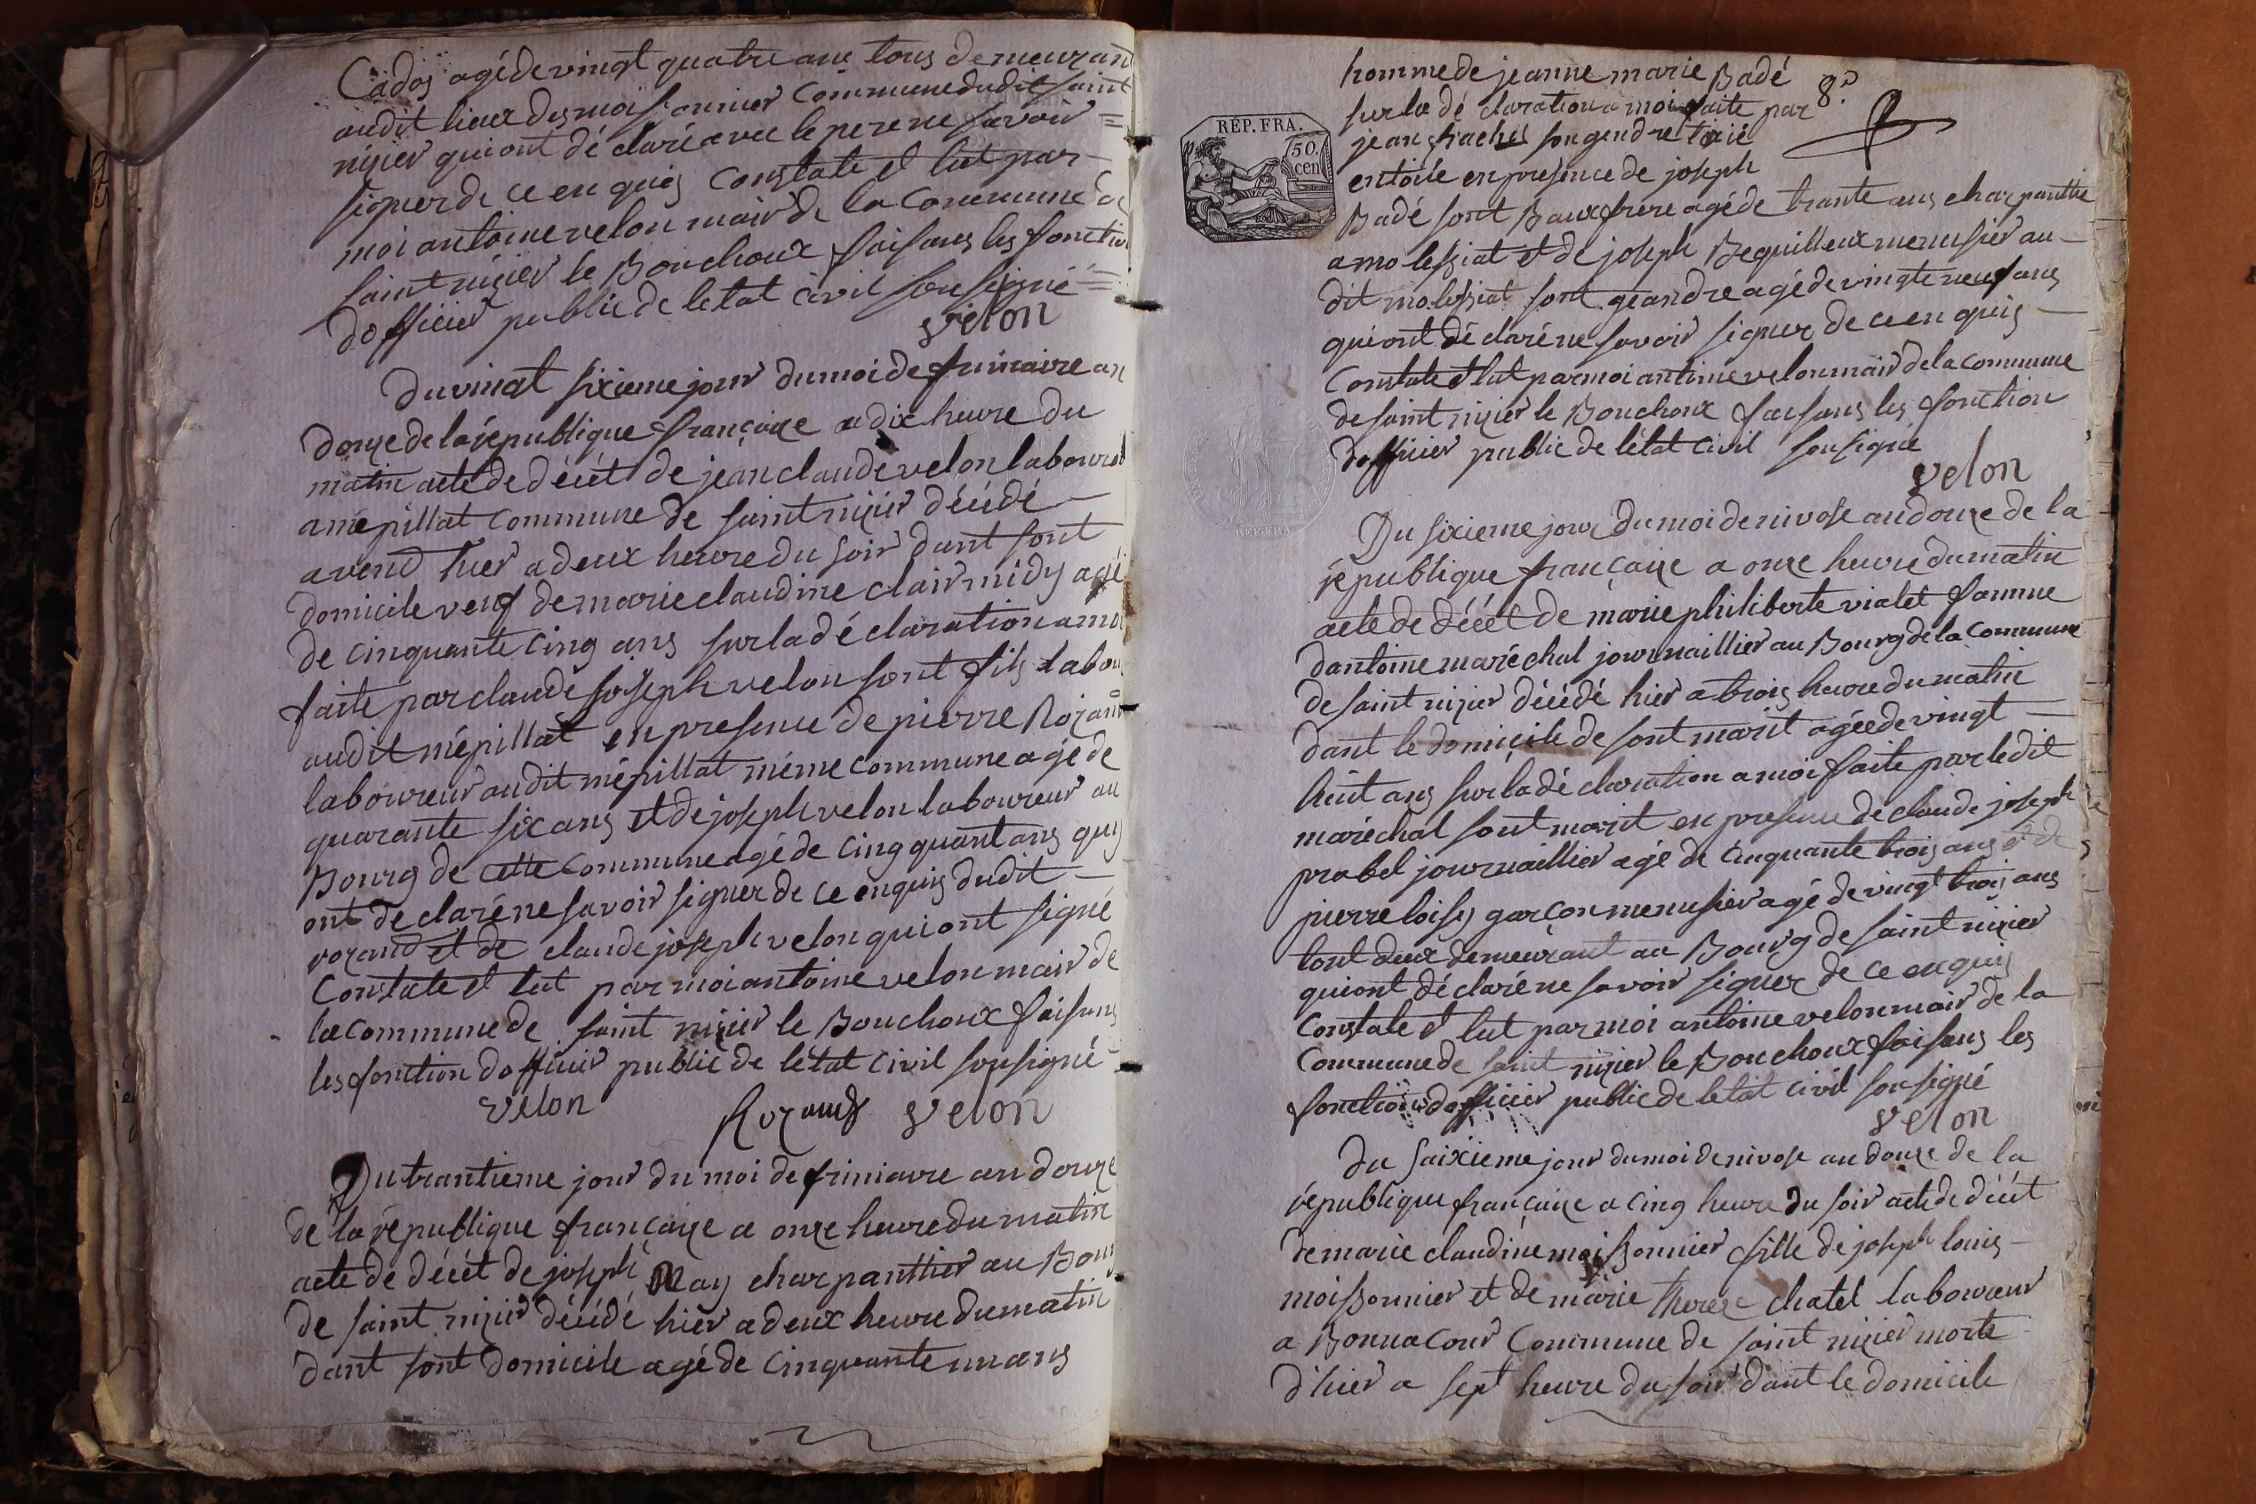 Cados agé de vingt quatre ans tous demeurant
audit lieux des moissonnier Commune dudit saint
nizier qui ont dé claré avec le pere ne savoir
signer de ce en quis Constaté et lut par
moi antoine velon mair de la Commune de
saint nizier le Bouchoux faisans les fonction
dofficier public de letat civil sousigné
velon
Du vingt sixieme jour du moi de frimaire an
Douze de la république françaize a dix heure du
matin acte de décét de jean claude velon laboureur
a mépillat Commune de saint nizier décédé
avend hier a deux heure du soir dant sont
domicile veuf de marie claudine clair midy agé
de cinquante cinq ans sur la dé claration a moi
faite par claude joseph velon sont fils labou
audit mépillat en presence de pierre Rozand
laboureur audit mépillat méme Commune agé de
quarante six ans et de joseph velon laboureur au
Bourg de cette Commune agé de cinq quant ans qui
ont de claré ne savoir signer de ce enquis dudit
rozand et de claude joseph velon qui ont signé
Constate et lut par moi antoine velon mair de
la Commune de saint nizier le Bouchoux faisans
les fonction dofficier public de letat civil sousigné
velon Rozand velon
Du trantieme jour du moi de frimiaire an douze
de la république françaize a onze heure du matin
acte de décét de joseph May charpanttier au Bour
de saint nizier décédé hier a deux heure du matin
dant sont domicile agé de cinquante un ans
homme de jeanne marie Badé
8.
sur la dé claration a moi faite par
jean son gendre
REP. FRA.
50 cen
entoile en presence de joseph
Badé sont Baux frere agé de trante ans charpanttie
a molessiat et de joseph Bequilleux menusier au
dit molessiat sont geandre agé de vingte neuf ans
qui ont dé claré ne savoir signer de ce en quis
Constate et lut par moi antoine velon mair de la commune
de saint nizier le Bouchoux faisans les fonction
dofficier public de létat civil sousigné
velon
Du sixieme jour du moi de nivose an douze de la
république françaize a onze heure du matin
acte de décét de marie philiberte vialet famme
dantoine maréchal journaillier au Bourg de la Commune
de saint nizier décédé hier a trois heure du matin
dant le domicile de sont marit agée de vingt
huit ans sur la dé claration a moi faite par ledit
maréchal sont marit en presence de claude joseph
prabel journaillier agé de cinquante trois ans et de
pierre loisy garcon menusier agé de vingt trois ans
tout deux demeurant au Bourg de saint nizier
qui ont dé claré ne savoir signer de ce en quis
Constate et lut par moi antoine velon mair de la
Commune de saint nizier le Bouchoux faisans les
fonction dofficier public de letat civil sousigné
velon
Du saixieme jour du moi de nivose an douze de la
république françaize a cinq heure du soir acte de décét
de marie claudine moissonnier fille de joseph louis
moissonnier et de marie therese chatel laboureur
a Bonnacour Commune de saint nizier morte
d'hier a sept heure du soir dant le domicile